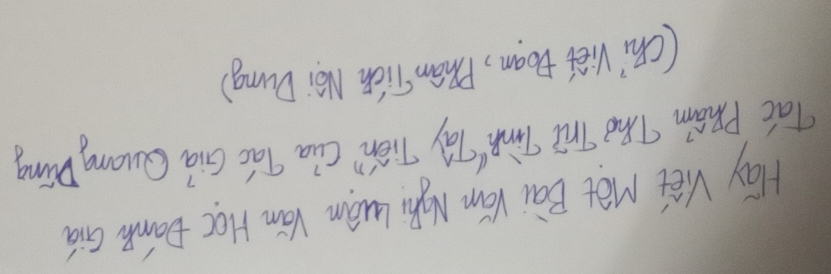 Hãy Viết Một Bài Văn Nghị Luận Văn Học Đánh Giá
Tác Phẩm Thơ Trữ Tình "Tây Tiến" Của Tác Giả Quang Dũng
(Chỉ Viết Đoạn, Phân Tích Nội Dung)